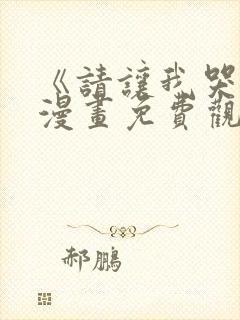 《請讓我哭
漫畫免費觀
郝鵬